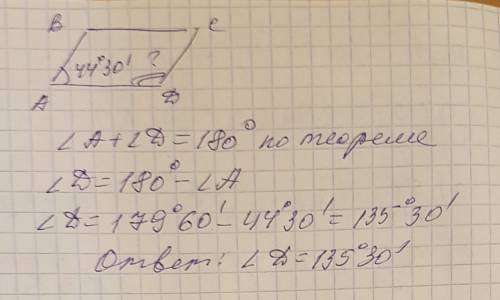 B C
44°30' ?
A D
∠A+∠D=180° по теореме
∠D=180°-∠A
∠D=179°60'-44°30'=135°30'
Ответ: ∠D=135°30'